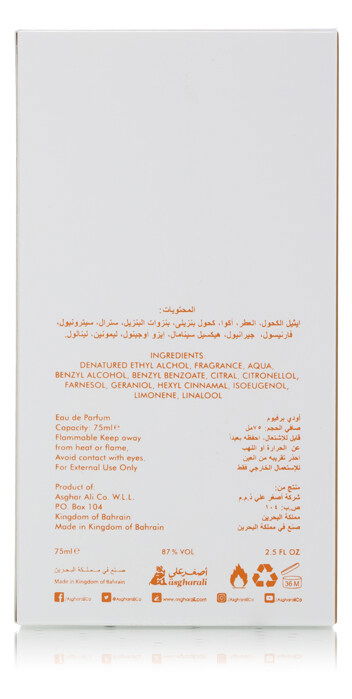 المحتويات:
ايثيل الكحول، العطر، أكوا، كحول بنزيلي، بنزوات البنزيل، سترال، سيترونيول،
فارنيسول، جيرانيول، هيكسيل سينامال، ايزو اوجينول، ليمونين، لينالول.
INGREDIENTS
DENATURED ETHYL ALCHOL, FRAGRANCE, AQUA,
BENZYL ALCOHOL, BENZYL BENZOATE, CITRAL, CITRONELLOL,
FARNESOL, GERANIOL, HEXYL CINNAMAL, ISOEUGENOL,
LIMONENE, LINALOOL
Eau de Parfum
Capacity: 75ml℮
Flammable Keep away
from heat or flame.
Avoid contact with eyes.
For External Use Only
أودي برفيوم
صافي الحجم: ٧٥مل
قابل للاشتعال، احفظه بعيداً
عن الحرارة أو اللهب
احذر تقريبه من العين
للإستعمال الخارجي فقط
Product of:
Asghar Ali Co. W.L.L.
P.O. Box 104
Kingdom of Bahrain
Made in Kingdom of Bahrain
منتج من:
شركة أصغر علي ذ.م.م
ص.ب: ١٠٤
مملكة البحرين
صنع في مملكة البحرين
75ml℮ 87% VOL 2.5 FL OZ
صنع في مملكة البحرين
Made in Kingdom of Bahrain
أصغر علي
asgharali
36 M
/AsgharaliCo /AsgharaliCo www.asgharali.com /asgharalico /AsgharaliCo